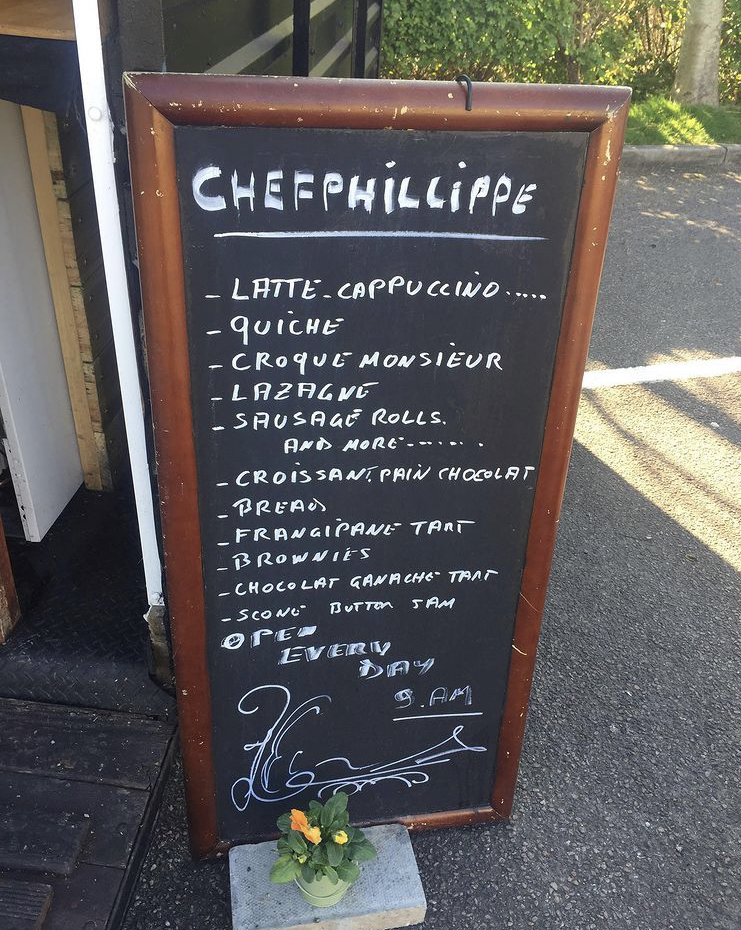 CHEFPHILLIPPE
- LATTE - CAPPUCCINO.....
- QUICHE
- CROQUE MONSIEUR
- LAZAGNE
- SAUSAGE ROLLS.
AND MORE-......
- CROISSANT, PAIN CHOCOLAT
- BREAD
- FRANGIPANE TART
- BROWNIES
- CHOCOLAT GANACHE TART
- SCONE BUTTOR JAM
OPEN
EVERY
DAY
9.AM